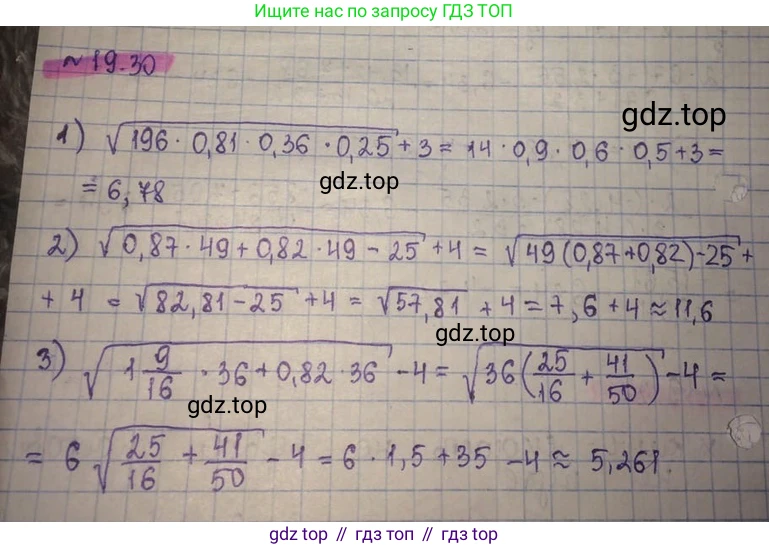 Ищите нас по запросу ГДЗ ТОП
~ 19.30
gdz.top
1) √196 · 0,81 · 0,36 · 0,25 + 3 = 14 · 0,9 · 0,6 · 0,5 + 3 =
= 6,78
gdz.top
2) √0,87 · 49 + 0,82 · 49 - 25 + 4 = √49(0,87+0,82)-25 +
+ 4 = √82,81 - 25 + 4 = √57,81 + 4 = 7,6 + 4 ≈ 11,6
gdz.top
3) √1 9/16 · 36 + 0,82 · 36 - 4 = √36(25/16 + 41/50) - 4 =
gdz.top
= 6 √25/16 + 41/50 - 4 = 6 · 1,5 + 35 - 4 ≈ 5,261.
gdz top // гдз топ // gdz top